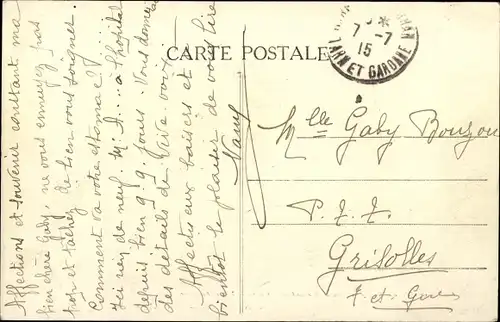 CARTE POSTALE
7 - 7
15
TARN ET GARONNE
Affections et souvenir constant ma
bien chère Gaby, ne vous ennuyez pas
trop et tâchez de bien vous soigner.
Comment va votre estomac?
Ici rien de neuf. M. D.... a l'hôpital
depuis bien 9.9 jours. Vous donnez
des détails de Vive voix
Affectueux baisers et
bientôt le plaisir de vous lire
Nany
Mlle Gaby Bouzon
P. T. T.
Grisolles
T. et Gar